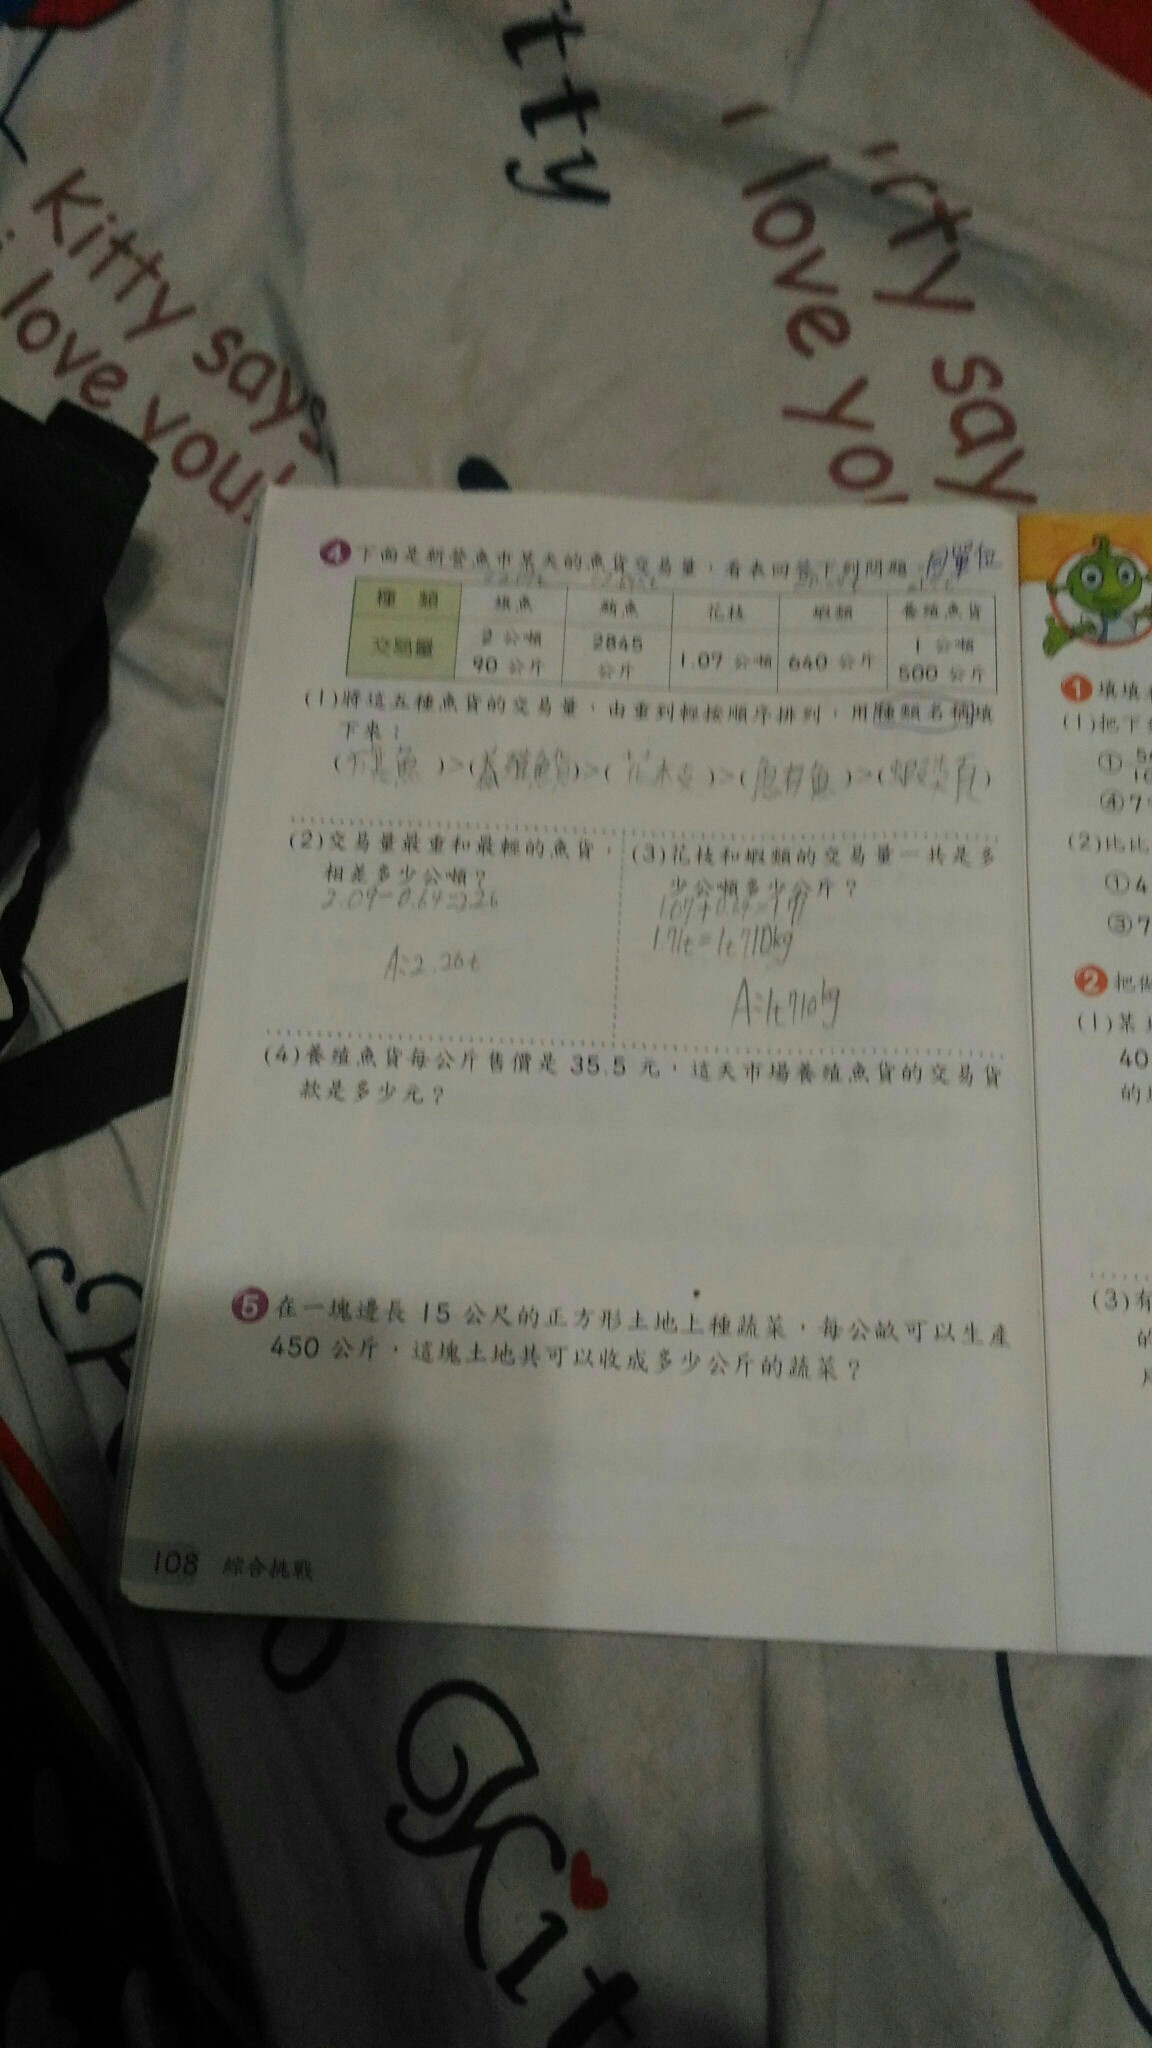 tty
Kitty says
love you!
rty say
I love yo
4 下面是新營魚市某天的魚貨交易量，看表回答下列問題。 同單位
種 類 旗魚 鮪魚 花枝 蝦類 養殖魚貨
交易量 2 公噸 90 公斤 2845 公斤 1.07 公噸 640 公斤 1 公噸 500 公斤
(1)將這五種魚貨的交易量，由重到輕按順序排列，用種類名稱填
下來：
(旗魚)>(養殖魚貨)>(花枝)>(鮪魚)>(蝦類)
(2)交易量最重和最輕的魚貨，
相差多少公噸？
2.09-0.64=2.26
A:2.26t
(3)花枝和蝦類的交易量一共是多
少公噸多少公斤？
1.07+0.64=1.71
1.71t=1t710kg
A:1t710kg
(4)養殖魚貨每公斤售價是 35.5 元，這天市場養殖魚貨的交易貨
款是多少元？
5 在一塊邊長 15 公尺的正方形土地上種蔬菜，每公畝可以生產
450 公斤，這塊土地共可以收成多少公斤的蔬菜？
108 綜合挑戰
1 填填
(1)把下
①
④7
(2)比比
①4
③7
2 把
(1)某
40
的
(3)有
的
Kit